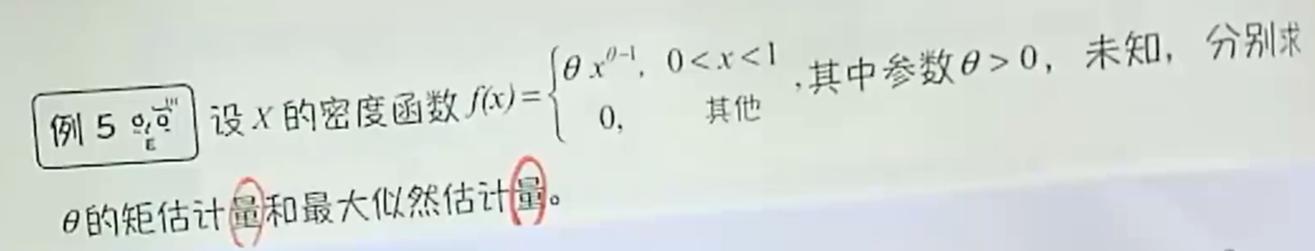 例 5 设 X 的密度函数 f(x) = { θ x^{θ-1}, 0 < x < 1 ,其中参数 θ > 0, 未知, 分别求
0, 其他
θ 的矩估计量和最大似然估计量。